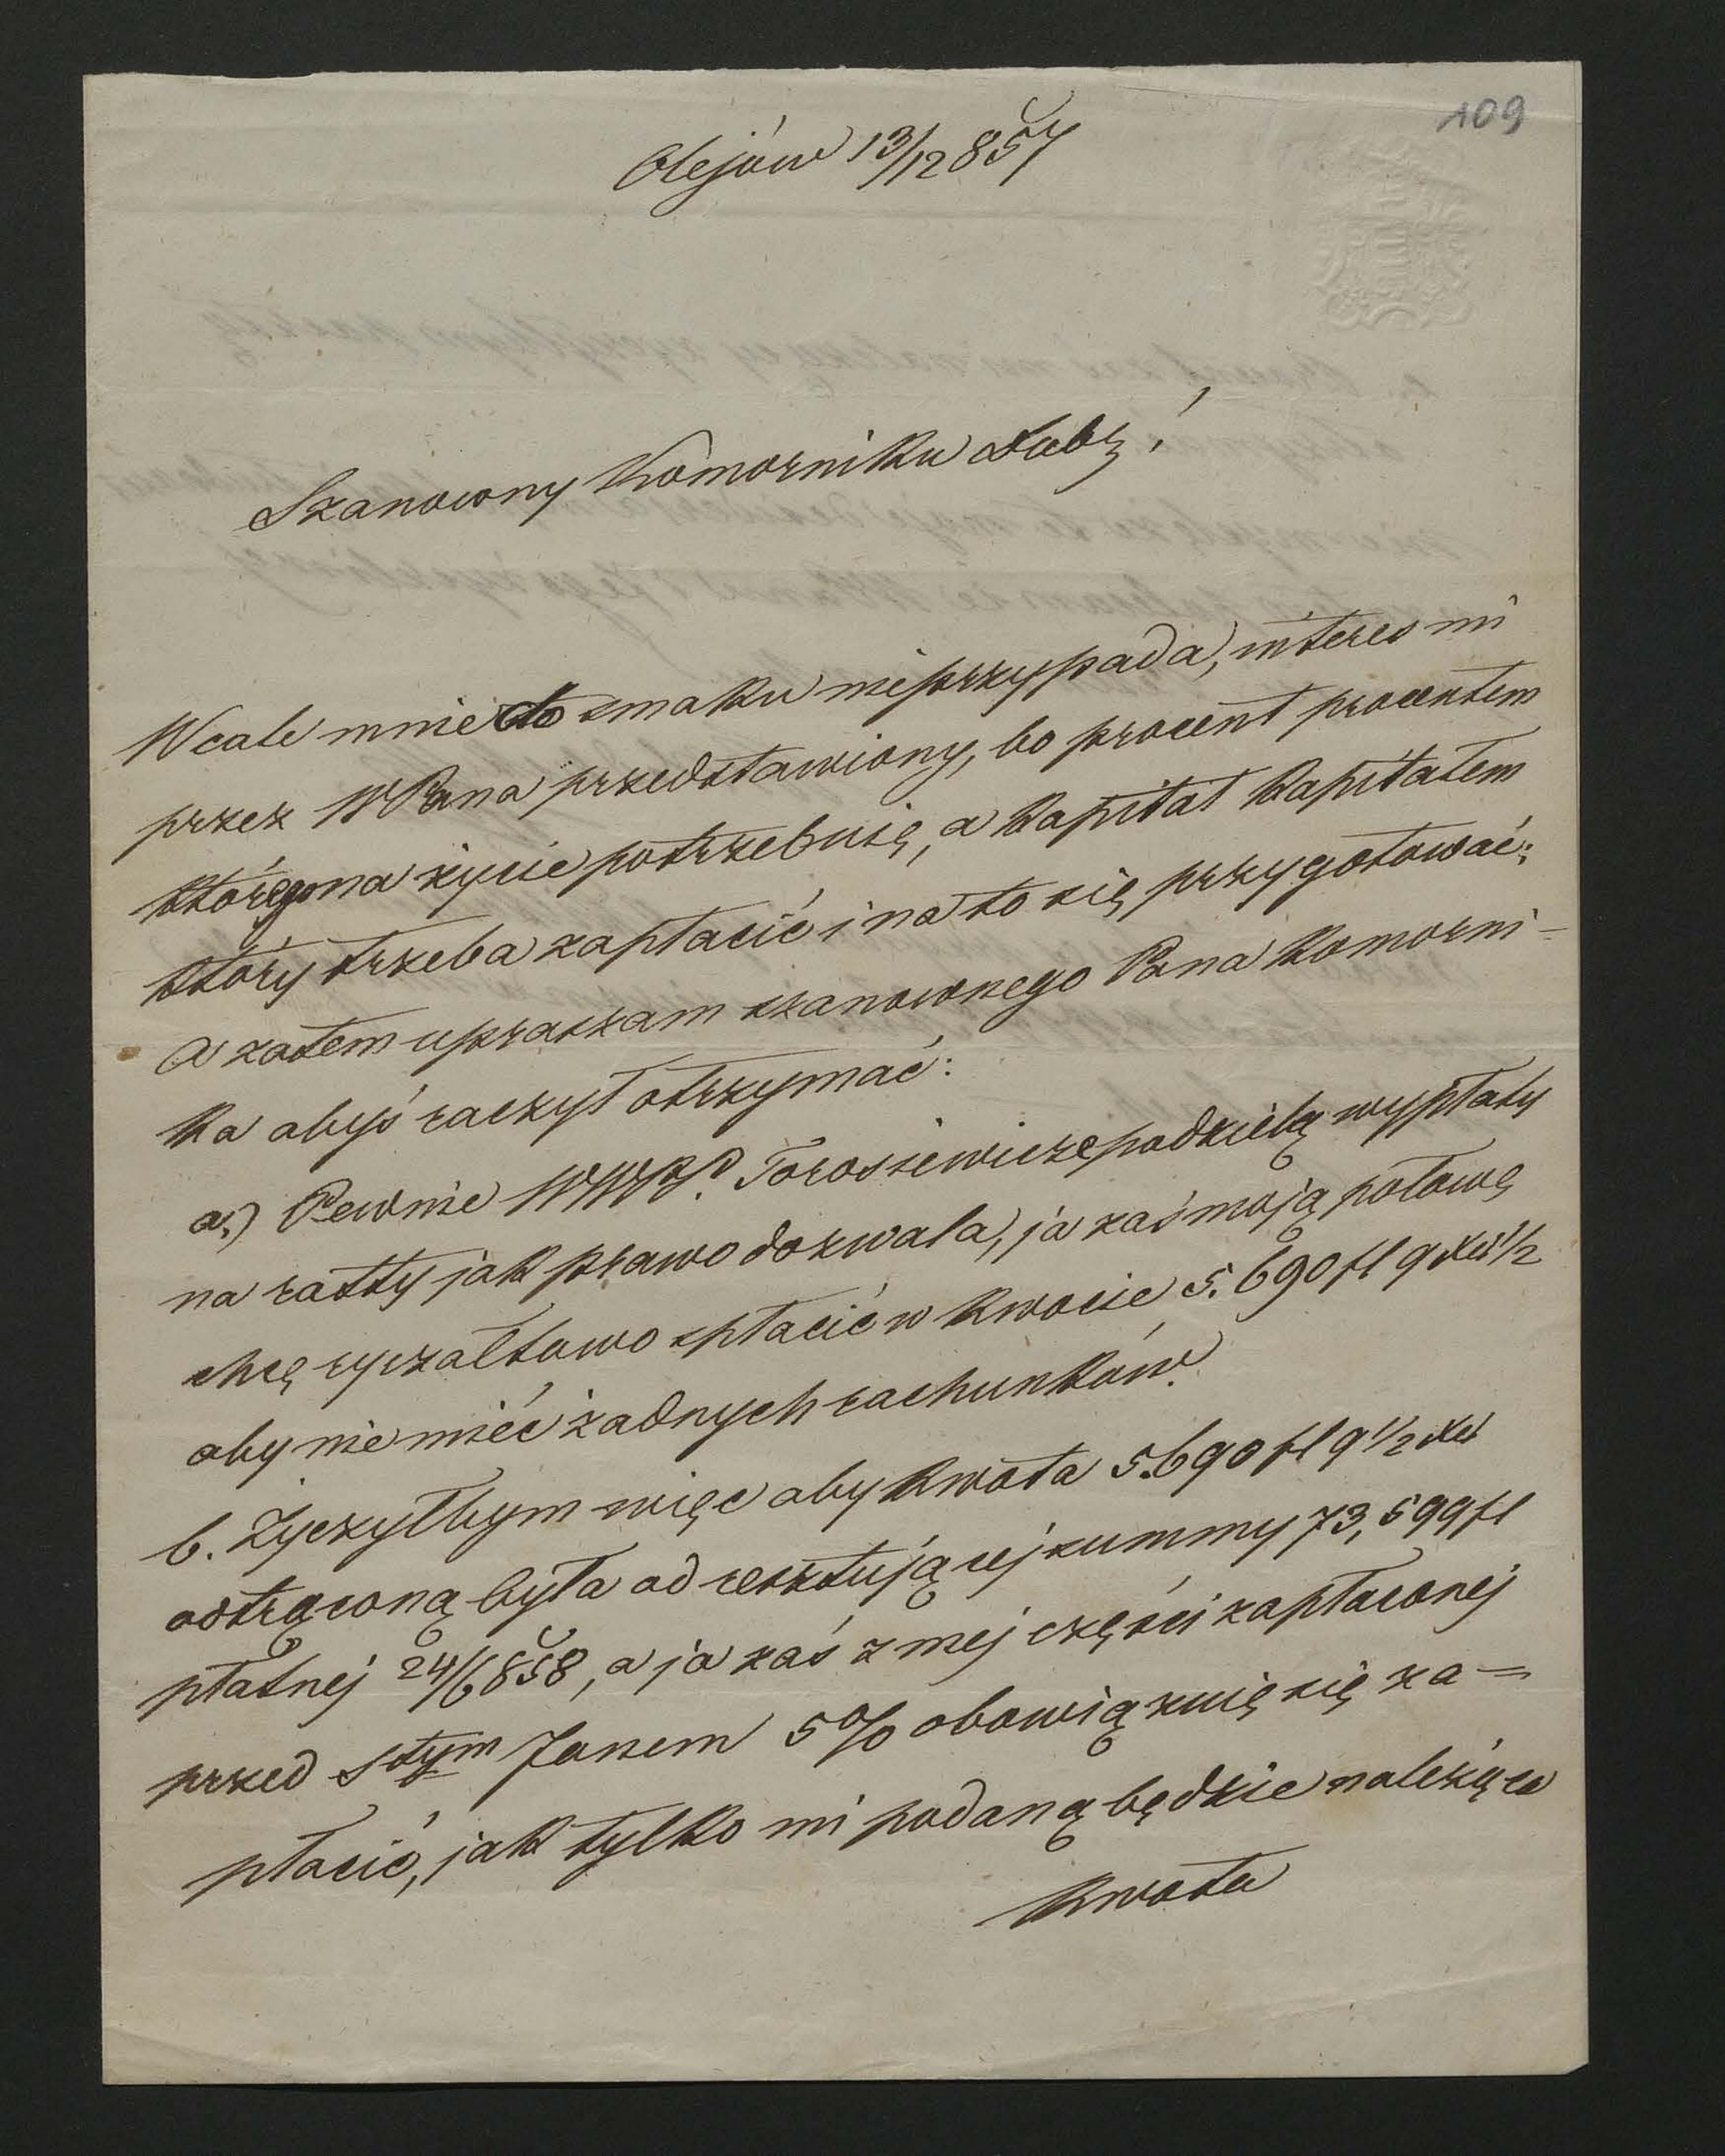 109
Olejów 13/12 857
Szanowny Komorniku Dobr!
Wcale mnie do smaku nieprzypada, interes mi
przez WPana przedstawiony, bo procent procentem
którego na życie potrzebuię, a kapitał kapitałem
który trzeba zapłacić i na to się przygotować;
a zatem upraszam szanownego Pana Komorni=
ka abyś raczył otrzymać:
a.) Pewnie WWPP. Torosiewicze podzielą wypłaty
na ratty jak prawo dozwala, ja zaś moją połowę
chcę ryczałtowo spłacić w kwocie 5.690 fl 9 xr 1/2
aby nie mieć żadnych rachunków.
b. Życzyłbym więc aby kwota 5.690 fl 9 1/2 xr
odtrąconą była od resztującej summy 73,599 fl
płatnej 24/6 858, a ja zaś z mej części zapłaconej
przed Stym Janem 5% obowiązuię się za=
płacić, jak tylko mi podaną będzie należąca
kwota